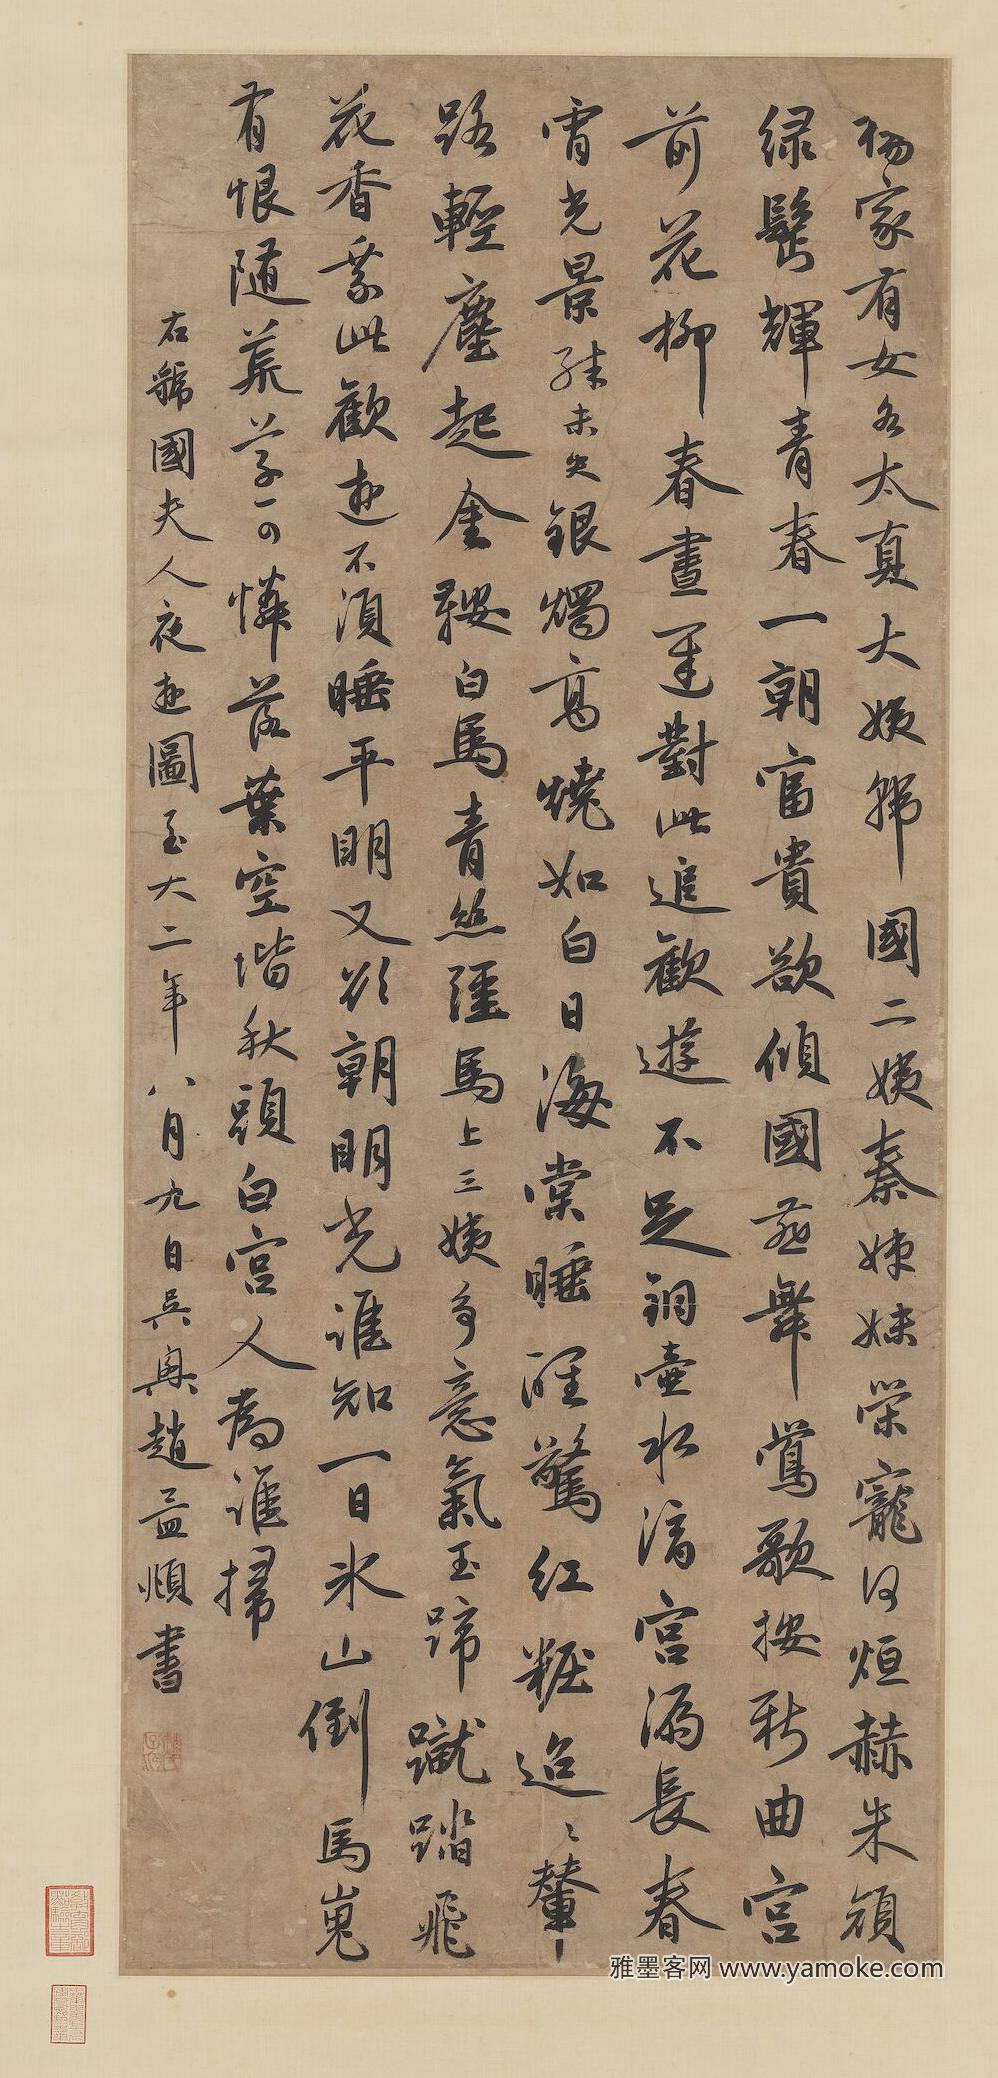 楊家有女名太真大姨韩國二姨秦姊妹榮寵何烜赫朱顔
緑鬓輝青春一朝富貴欲傾國燕舞鶯歌按新曲宮
前花柳春晝遲對此追歡遊不足銅壺水滴宮漏長春
宵光景殊未央銀燭高燒如白日海棠睡醒驚紅粧迢〻輦
路輕塵起金鞍白馬青絲韁馬上三姨多意氣玉蹄蹴踏飛
花香乘此歡遊不須睡平明又欲朝明光誰知一日氷山倒馬嵬
有恨隨荒草可憐落葉空堦秋頭白宮人為誰掃
右虢國夫人夜遊圖至大二年八月九日吳興趙孟頫書
雅墨客网 www.yamoke.com